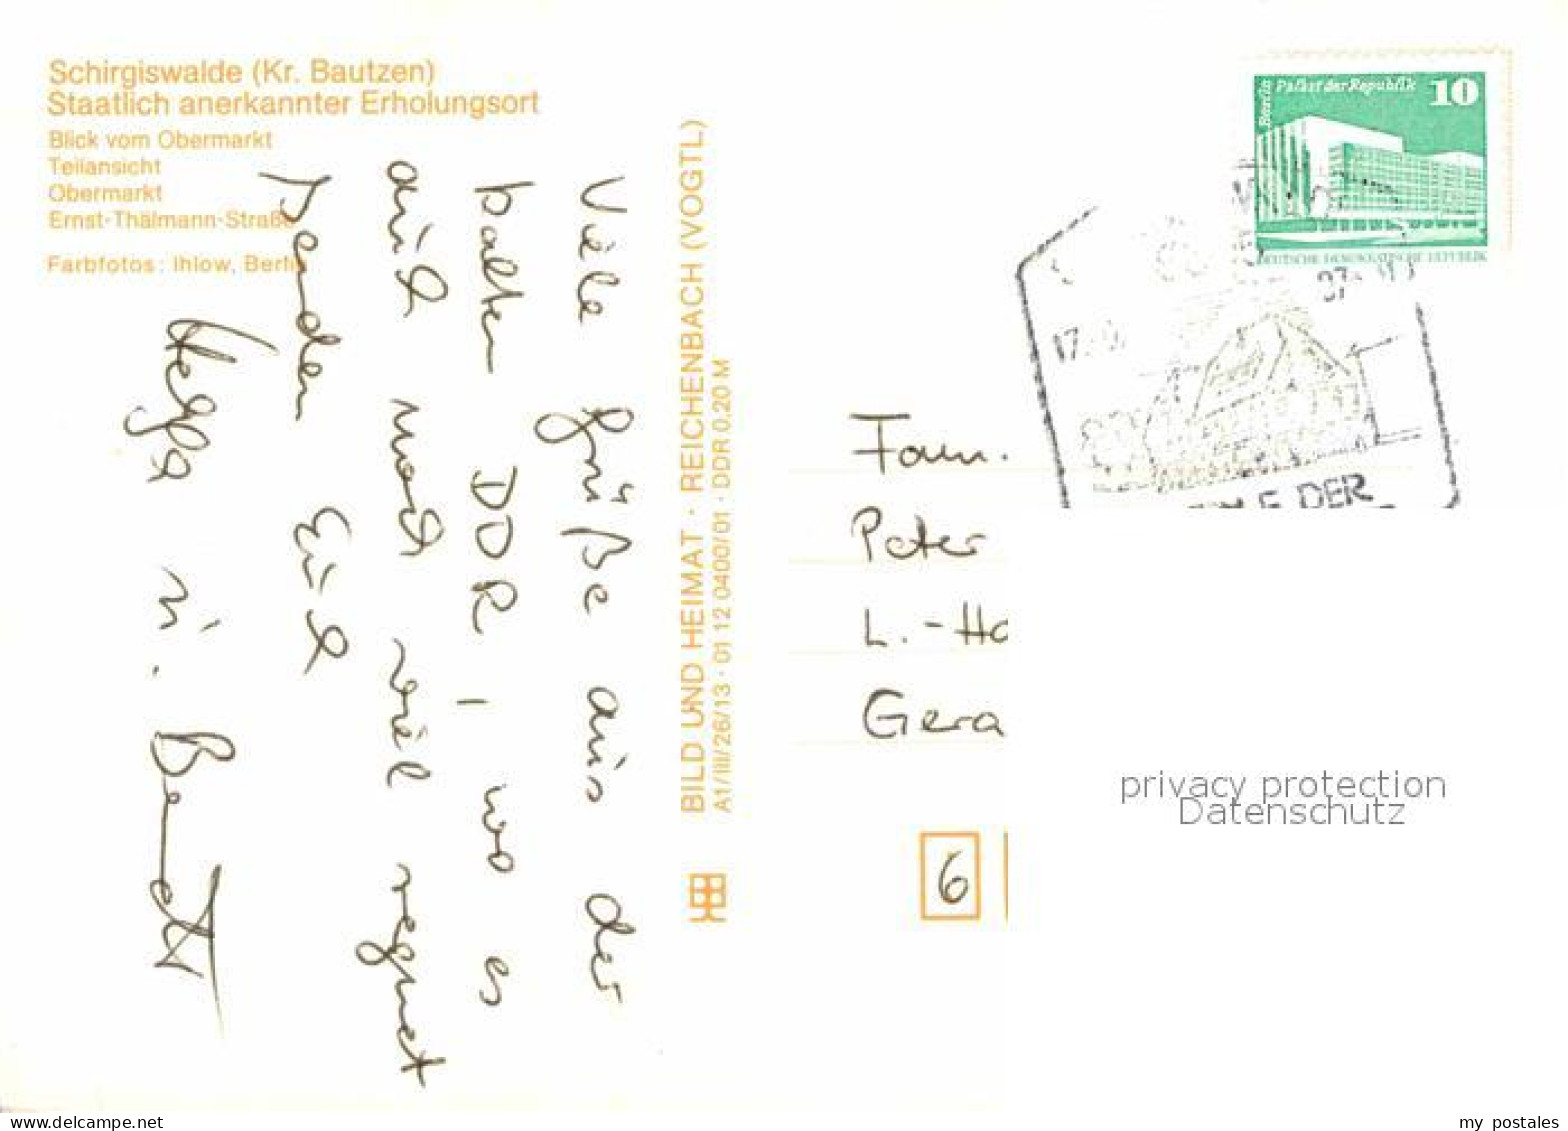 Schirgiswalde (Kr. Bautzen)
Staatlich anerkannter Erholungsort
Blick vom Obermarkt
Teilansicht
Obermarkt
Ernst-Thälmann-Straße
Farbfotos: Ihlow, Berlin
Viele Grüße aus der
kalten DDR, wo es
auch noch viel regnet
senden Euch
u. Bernd
BILD UND HEIMAT · REICHENBACH (VOGTL)
A1/III/26/13 · 01 12 0400/01 · DDR 0,20 M
Berlin Palast der Republik 10
DEUTSCHE DEMOKRATISCHE REPUBLIK
DER
Fam.
Peter
L.-Ho
Gera
6
privacy protection
Datenschutz
my postales